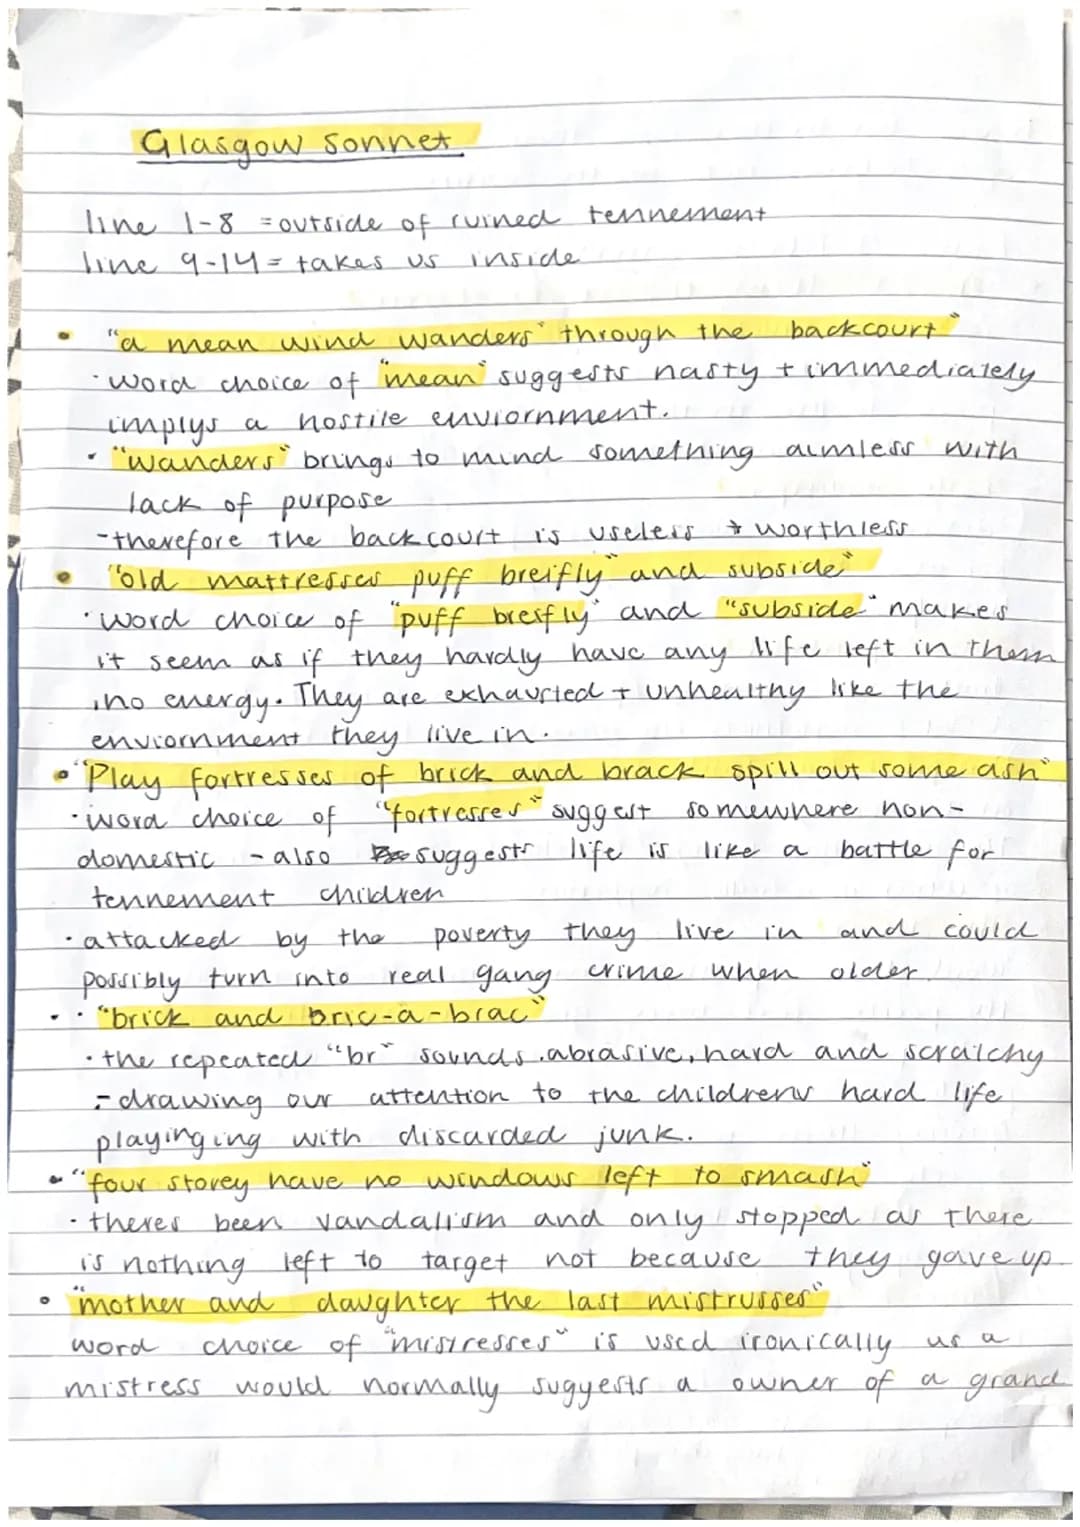 Glasgow Sonnet
line 1-8 = outside of ruined tennement
line 9-14 = takes us inside
• "a mean wind wanders" through the backcourt"
· word choice of "mean" suggests nasty + immediately
implys a hostile enviornment.
· "wanders" brings to mind something aimless with
lack of purpose
- therefore the backcourt is useless + worthless
• "old mattresses puff breifly" and subside"
· word choice of "puff breifly" and "subside" makes
it seem as if they hardly have any life left in them
, no energy. They are exhausted + unhealthy like the
enviornment they live in.
• "Play fortresses of brick and brack spill out some ash"
· word choice of "fortresses" suggest somewhere non-
domestic - also suggests life is like a battle for
tennement children
· attacked by the poverty they live in and could
possibly turn into real gang crime when older
· · "brick and bric-a-brac"
· the repeated "br" sounds .abrasive, hard and scratchy
- drawing our attention to the childrens hard life
playinging with discarded junk.
• "four storey have no windows left to smash"
· theres been vandalism and only stopped as there
is nothing left to target not because they gave up.
• "mother and daughter the last mistrusses"
word choice of "mistresses" is used ironically us a
mistress would normally suggests a owner of a grand